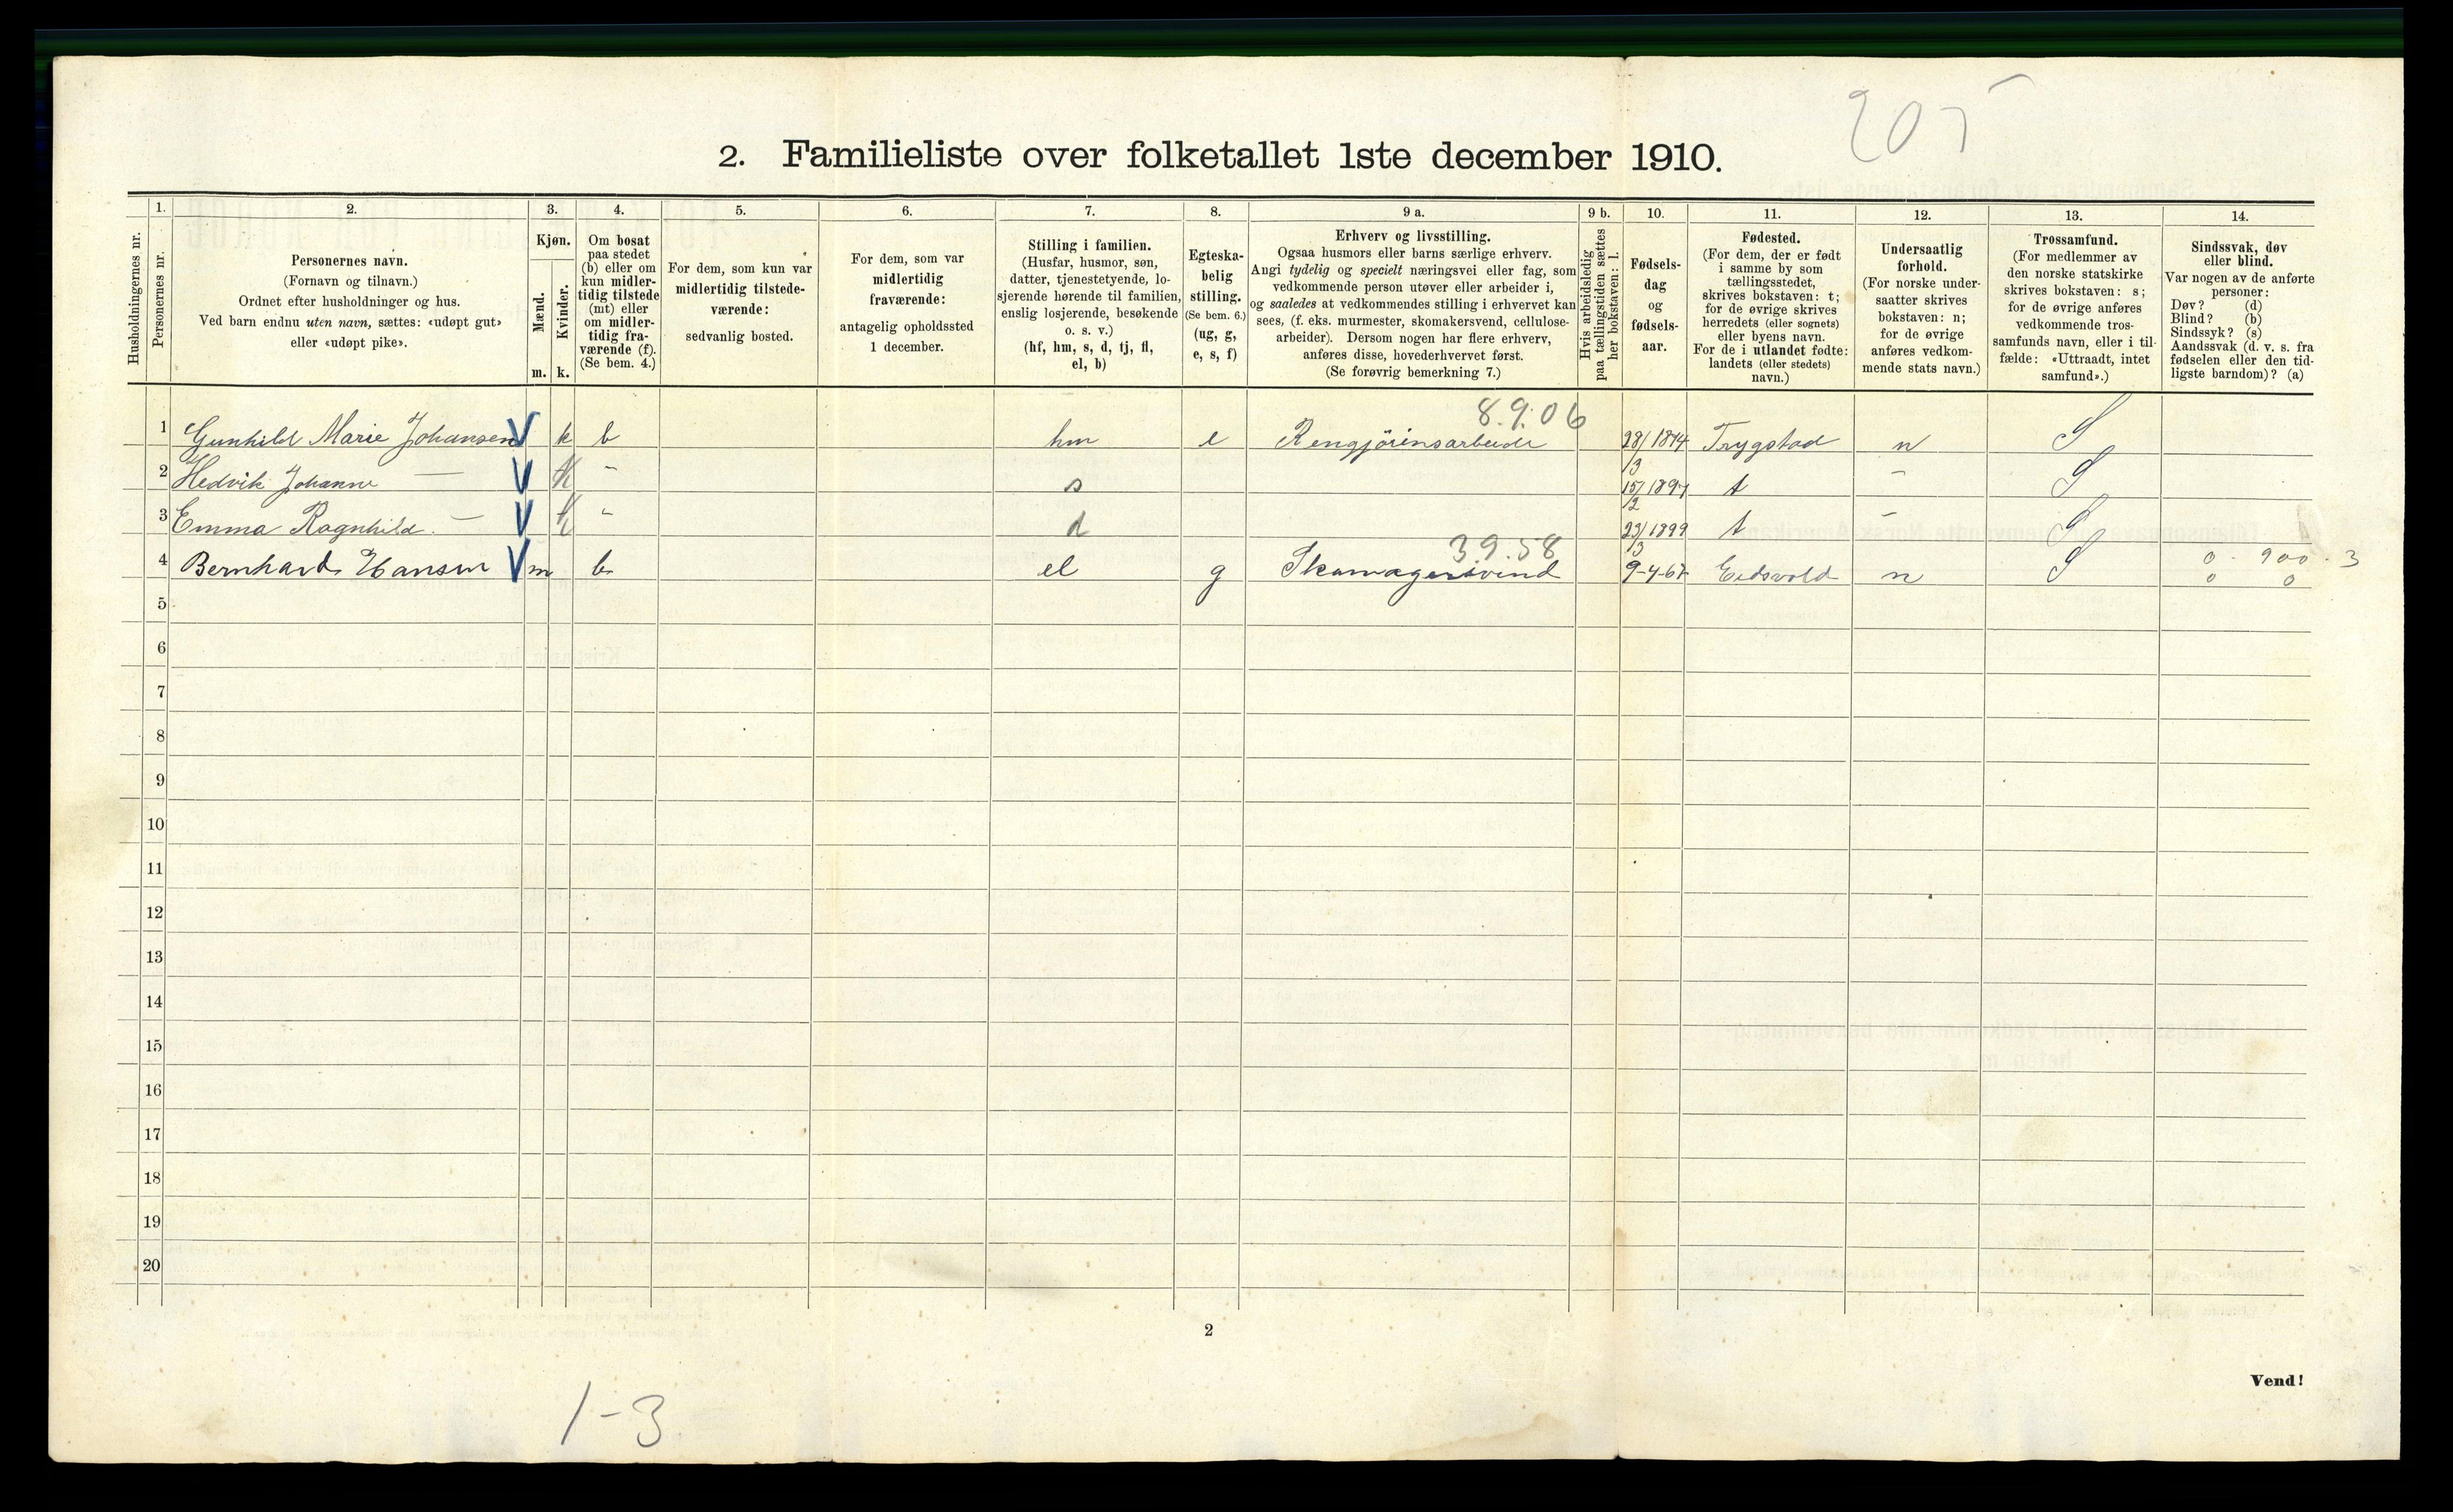 205
2. Familieliste over folketallet 1ste december 1910.
Husholdningernes nr.
1.
Personernes nr.
2.
Personernes navn.
(Fornavn og tilnavn.)
Ordnet efter husholdninger og hus.
Ved barn endnu uten navn, sættes: «udøpt gut»
eller «udøpt pike».
3.
Kjøn.
Mænd.
Kvinder.
m.
k.
4.
Om bosat
paa stedet
(b) eller om
kun midler-
tidig tilstede
(mt) eller
om midler-
tidig fra-
værende (f).
(Se bem. 4.)
5.
For dem, som kun var
midlertidig tilstede-
værende:
sedvanlig bosted.
6.
For dem, som var
midlertidig
fraværende:
antagelig opholdssted
1 december.
7.
Stilling i familien.
(Husfar, husmor, søn,
datter, tjenestetyende, lo-
sjerende hørende til familien,
enslig losjerende, besøkende
o. s. v.)
(hf, hm, s, d, tj, fl,
el, b)
8.
Egteska-
belig
stilling.
(Se bem. 6.)
(ug, g,
e, s, f)
9 a.
Erhverv og livsstilling.
Ogsaa husmors eller barns særlige erhverv.
Angi tydelig og specielt næringsvei eller fag, som
vedkommende person utøver eller arbeider i,
og saaledes at vedkommendes stilling i erhvervet kan
sees, (f. eks. murmester, skomakersvend, cellulose-
arbeider). Dersom nogen har flere erhverv,
anføres disse, hovederhvervet først.
(Se forøvrig bemerkning 7.)
9 b.
Hvis arbeidsledig
paa tællingstiden sættes
her bokstaven: l.
10.
Fødsels-
dag
og
fødsels-
aar.
11.
Fødested.
(For dem, der er født
i samme by som
tællingsstedet,
skrives bokstaven: t;
for de øvrige skrives
herredets (eller sognets)
eller byens navn.
For de i utlandet fødte:
landets (eller stedets)
navn.)
12.
Undersaatlig
forhold.
(For norske under-
saatter skrives
bokstaven: n;
for de øvrige
anføres vedkom-
mende stats navn.)
13.
Trossamfund.
(For medlemmer av
den norske statskirke
skrives bokstaven: s;
for de øvrige anføres
vedkommende tros-
samfunds navn, eller i til-
fælde: «Uttraadt, intet
samfund».)
14.
Sindssvak, døv
eller blind.
Var nogen av de anførte
personer:
Døv? (d)
Blind? (b)
Sindssyk? (s)
Aandssvak (d. v. s. fra
fødselen eller den tid-
ligste barndom)? (a)
8.9.06
1 Gunhild Marie Johansen V k b hm e Rengjörinsarbeide 28/3 Trygstad n S
2 Hedvik Johanne — V k - s 15/2 t - S
3 Emma Ragnhild. — V k - d 23/3 1899 t - S
39.58
4 Bernhard Hansen V m b el g Skomagersvend 9-4-67 Eidsvold n S 0 - 900 - 3
0 0
5
6
7
8
9
10
11
12
13
14
15
16
17
18
19
20
2
Vend!
1-3